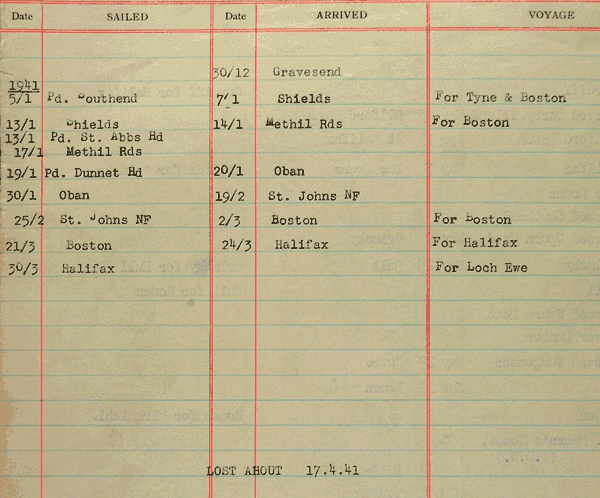 Date SAILED Date ARRIVED VOYAGE
30/12 Gravesend
1941
5/1 Pd. Southend 7/1 Shields For Tyne & Boston
13/1 Shields 14/1 Methil Rds For Boston
13/1 Pd. St. Abbs Hd
17/1 Methil Rds
19/1 Pd. Dunnet Hd 20/1 Oban
30/1 Oban 19/2 St. Johns NF
25/2 St. Johns NF 2/3 Boston For Boston
21/3 Boston 24/3 Halifax For Halifax
30/3 Halifax For Loch Ewe
LOST ABOUT 17.4.41